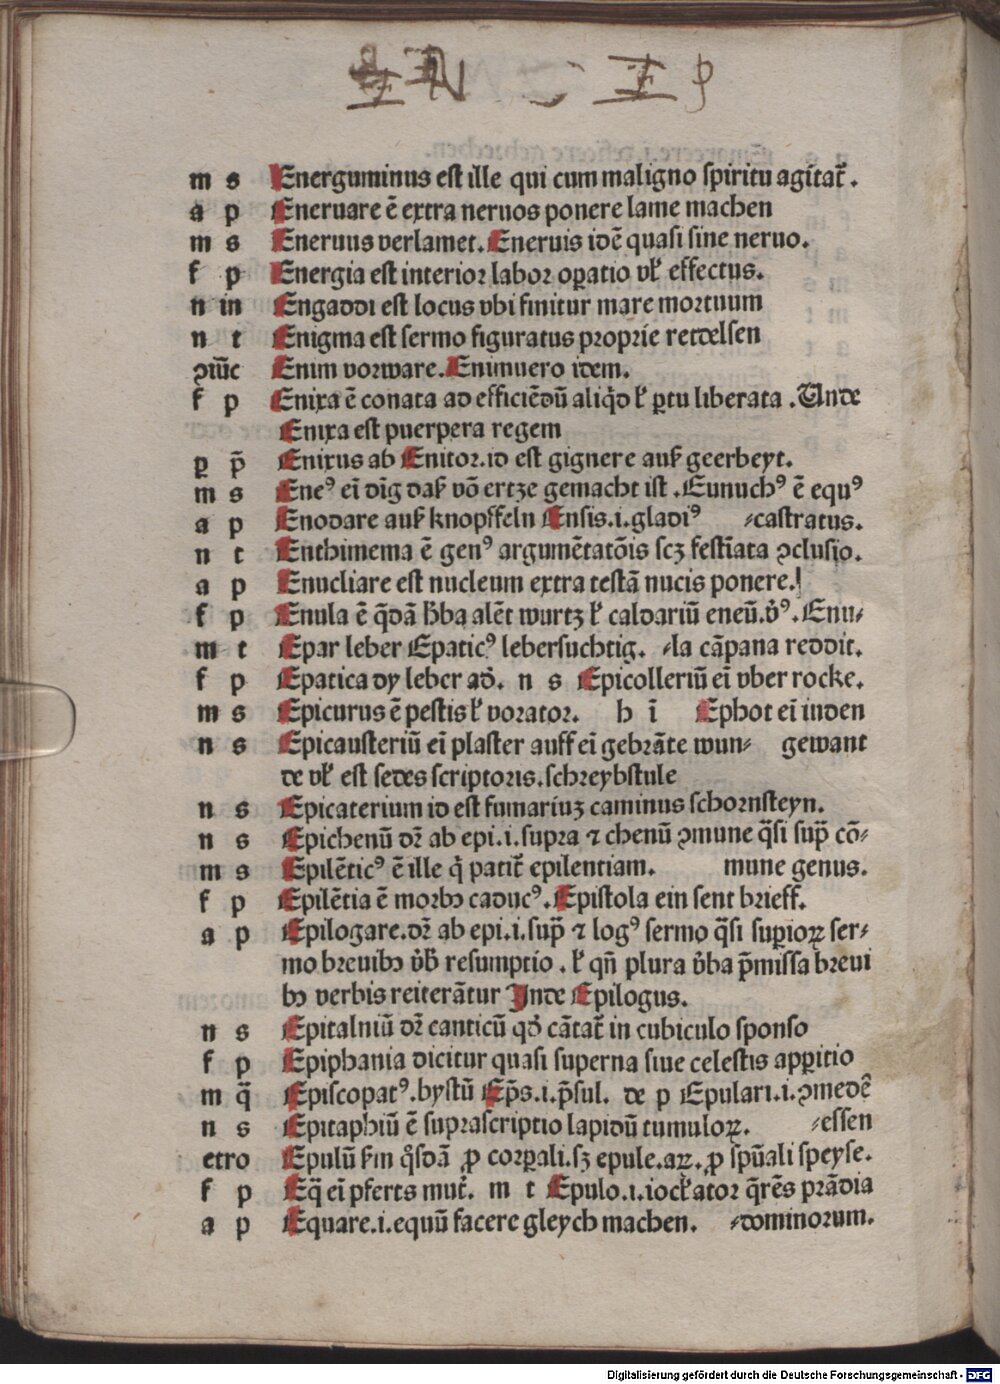 EN EP
m s Energuminus est ille qui cum maligno spiritu agitat᷑.
a p Eneruare ē extra neruos ponere lame machen
m s Eneruus verlamet. Eneruis idē quasi sine neruo.
f p Energia est interior labor oꝑatio vꝉ effectus.
n in Engaddi est locus vbi finitur mare mortuum
n t Enigma est sermo figuratus proprie retdelsen
ꝯiūc Enim vorware. Enimuero idem.
f p Enixa ē conata ad efficiēdū aliqͥd ꝉ ꝑtu liberata. Unde
Enixa est puerpera regem
ꝑ p̄ Enixus ab Enitor. id est gignere auß geerbeyt.
m s Eneꝰ ei᷑ dīg daß vō ertze gemacht ist. Eunuchꝰ ē equꝰ
a p Enodare auß knopffeln Ensis .i. gladiꝰ ⸗castratus.
n t Enthimema ē genꝰ argumētatōis scꝫ festīata ꝯclusio.
a p Enucliare est nucleum extra testā nucis ponere.
f p Enula ē q̄dā h̓ba alēt wurtz ꝉ caldariū eneū. v̓ꝰ. Enu⸗
m t Epar leber Epaticꝰ lebersuchtig. ⸗la cāpana reddit.
f p Epatica dy leber ad̓. n s Epicolleriū eī vber rocke.
m s Epicurus ē pestis ꝉ vorator. h ī Ephot eī inden
n s Epicausteriū eī plaster auff eī gebrāte wun⸗ gewant
de vꝉ est sedes scriptoris. schreybstule
n s Epicaterium id est fumariuꝫ caminus schornsteyn.
n s Epichenū dr̄ ab epi .i. supra ⁊ chenū ꝯmune q̄si sup̄ cō⸗
m s Epilēticꝰ ē ille q̇ patit᷑ epilentiam. mune genus.
f p Epilētia ē morbꝰ caducꝰ. Epistola ein sent brieff.
a p Epilogare. dr̄ ab epi .i. sup̄ ⁊ logꝰ sermo q̄si suꝑioꝝ ser⸗
mo breuibꝰ v̓b̓ resumptio. ꝉ qn̄ plura v̓ba p̄missa breui
bꝰ verbis reiterātur Inde Epilogus.
n s Epitalniū dr̄ canticū qd̓ cātat᷑ in cubiculo sponso
f p Epiphania dicitur quasi superna siue celestis apꝑitio
m q̄ Episcopatꝰ. bystū Ep̄s .i. p̄sul. de p Epulari .i. ꝯmedē
n s Epitaphiū ē suprascriptio lapidū tumuloꝝ. ⸗essen
etro Epulū ẜm qͦsdā ꝓ corꝑali. sꝫ epule. aꝝ. ꝓ spūali speyse.
f p Eq̄ eī pferts mut᷑. m t Epulo .i. iocꝉator q̄rēs prādia
a p Equare .i. equū facere gleych machen. ⸗dominorum.
Digitalisierung gefördert durch die Deutsche Forschungsgemeinschaft - DFG